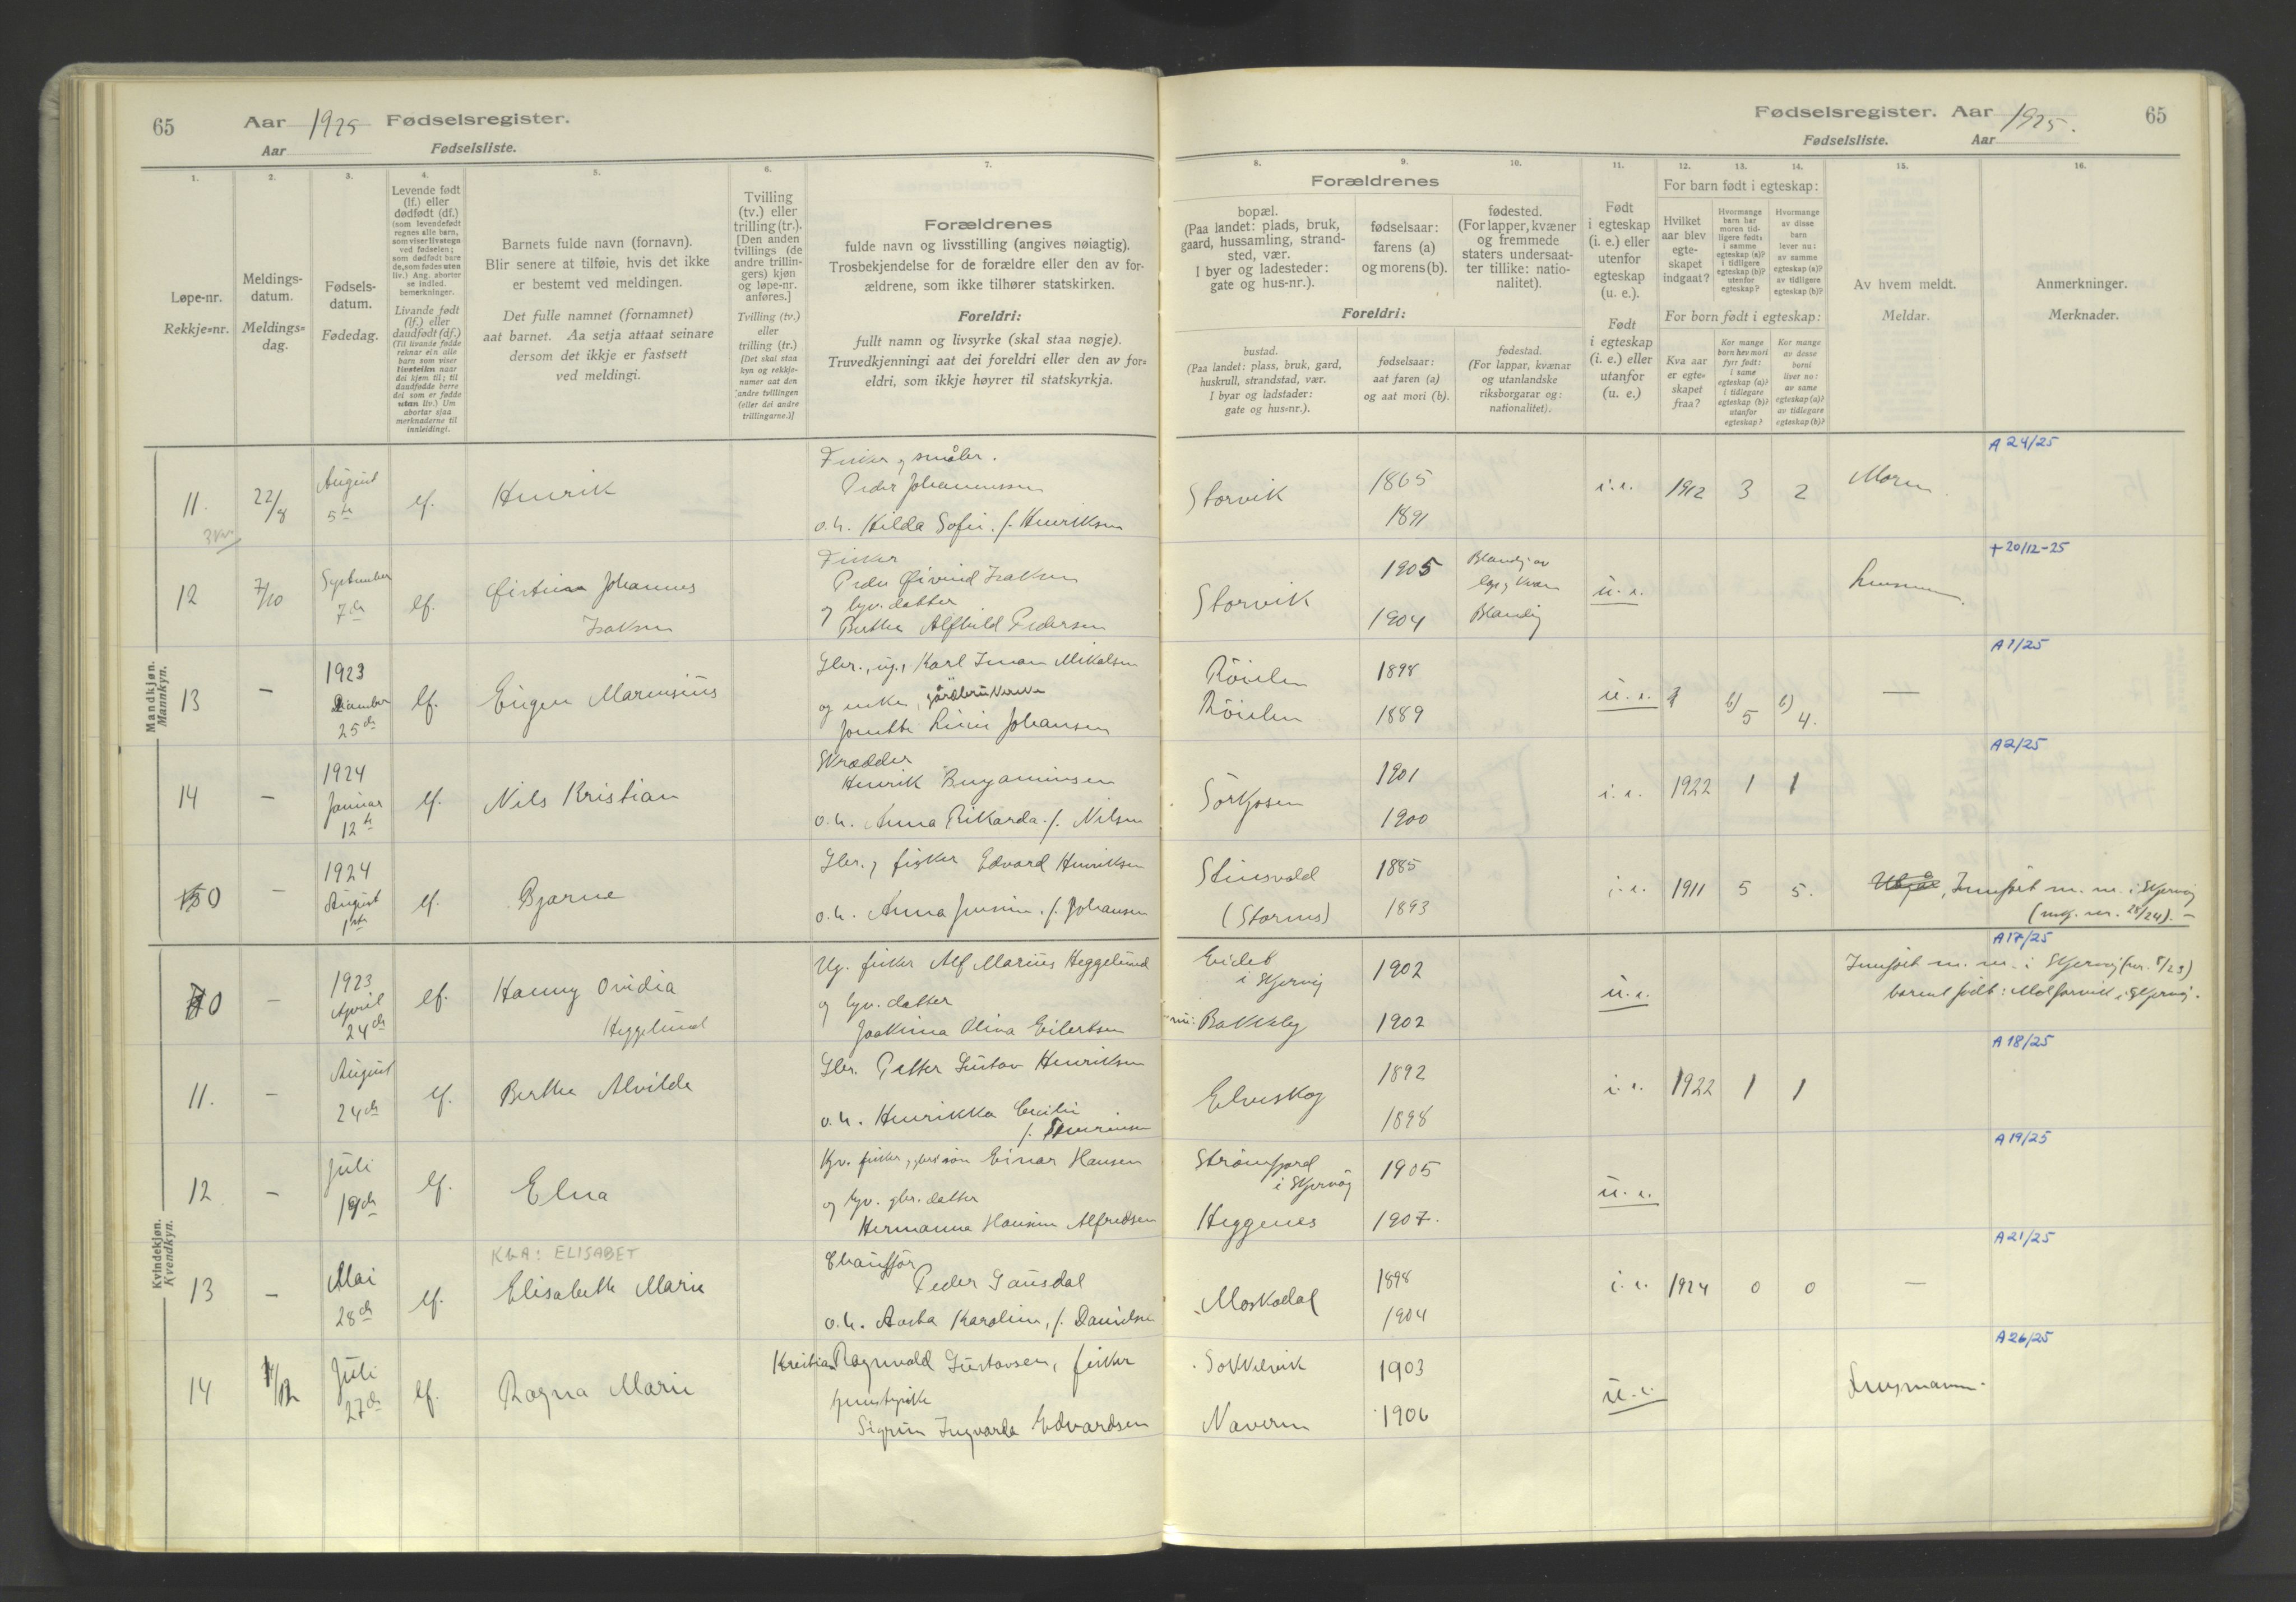 65 Aar 1925 Fødselsregister.
Aar Fødselsliste.
1. 2. 3. 4. 5. 6. 7.
Løpe-nr.
Rekkje-nr.
Meldings-
datum.
Meldings-
dag.
Fødsels-
datum.
Fødedag.
Levende født
(lf.) eller
dødfødt (df.)
(som levendefødt
regnes alle barn,
som viser livstegn
ved fødselen;
som dødfødt bare
de, som fødes uten
liv.) Ang. aborter
se indled.
bemerkninger.
Livande født
(lf.) eller
daudfødt (df.)
(Til livande fødde
reknar ein alle
barn som viser
livsteikn naar
dei kjem til; til
daudfødde berre
dei som er fødde
utan liv.) Um
abortar sjaa
merknaderne til
innleidingi.
Barnets fulde navn (fornavn).
Blir senere at tilføie, hvis det ikke
er bestemt ved meldingen.
Det fulle namnet (fornamnet)
aat barnet. Aa setja attaat seinare
dersom det ikkje er fastsett
ved meldingi.
Tvilling
(tv.) eller
trilling (tr.).
[Den anden
tvillings (de
andre trillin-
gers) kjøn
og løpe-nr.
anføres.]
Tvilling (tv.)
eller
trilling (tr.)
[Det skal staa
kyn og rekkje-
numer aat den
andre tvillingen
(eller dei andre
trillingarne.)]
Forældrenes
fulde navn og livsstilling (angives nøiagtig).
Trosbekjendelse for de forældre eller den av for-
ældrene, som ikke tilhører statskirken.
Foreldri:
fullt namn og livsyrke (skal staa nøgje).
Truvedkjenningi aat dei foreldri eller den av for-
eldri, som ikkje høyrer til statskyrkja.
Mandkjøn.
Mannkyn.
11. 22/8 August 5te lf. Henrik
Fisker og småbr.
Peder Johannessen
o. h. Hilda Sofie, f. Henriksen
12 7/10 September 7de lf. Johannes
Isaksen
Fisker
Peder Øivind Isaksen
og
Berthe Alfhild Pedersen
13 – 1923 Desember 25de lf. Eugen Marensius
Gbr., ug., Karl Iman Mikalsen
og enke, gårdbrukerske
Johansen
14 – 1924 Januar 12te lf. Nils Kristian
Skrædder
Henrik Benjaminsen
o. h. Anna Rikarda f. Nilsen
– 1924 August 1ste lf. Bjarne
Gbr. og fisker Edvard Henriksen
o. h. Anna f. Johansen
Kvindekjøn.
Kvendkyn.
10 – 1923 April 24de lf. Hanny Ovidia
Heggelund
Ug. fisker Alf Marius Heggelund
og datter
Joakima Oliva Eilertsen
11. – August 24de lf. Berthe Alvilde
Gbr. Petter Gustav Henriksen
o. h. Henrikka Cecilie
12 – Juli 19de lf. Elna
fisker, Einar Hansen
og gbr. datter
Hermanna Hansine Alfredsen
13 – Mai 28de lf. K&A: ELISABET
Elisabeth Marie
Chauffør
Peder Gausdal
o. h. Karoline, f. Danielsen
14 Juli 27de lf. Ragna Marie
Kristian Ragnvald Gustavsen, fisker
tjenestepike
Sigrun Ingvarda Edvardsen
Fødselsregister. Aar 1925. 65
Fødselsliste. Aar
8. 9. 10. 11. 12. 13. 14. 15. 16.
Forældrenes
bopæl.
(Paa landet: plads, bruk,
gaard, hussamling, strand-
sted, vær.
I byer og ladesteder:
gate og hus-nr.).
fødselsaar:
farens (a)
og morens (b).
fødested.
(For lapper, kvæner
og fremmede
staters undersaat-
ter tillike: natio-
nalitet).
Foreldri:
bustad.
(Paa landet: plass, bruk, gard,
huskrull, strandstad, vær.
I byar og ladstader:
gate og hus-nr.).
fødselsaar:
aat faren (a)
og aat mori (b).
fødestad.
(For lappar, kvænar
og utanlandske
riksborgarar og:
nationalitet).
Født
i egteskap
(i. e.) eller
utenfor
egteskap
(u. e.).
Født
i egteskap
(i. e.) eller
utanfor
(u. e.)
For barn født i egteskap:
Hvilket
aar blev
egte-
skapet
indgaat?
Hvormange
barn har
moren tid-
ligere født:
i samme
egteskap (a)?
i tidligere
egteskap (b)?
utenfor
egteskap?
Hvormange
av disse
barn
lever nu:
av samme
egteskap (a)?
av tidligere
egteskap (b)?
For born født i egteskap:
Kva aar
er egte-
skapet
fraa?
Kor mange
born hev mori
fyrr født:
i same
egteskap (a)?
i tidlegare
egteskap (b)?
utanfor
egteskap?
Kor mange
av desse
borni
liver no:
av same
egteskap (a)?
av tidlegare
egteskap (b)?
Av hvem meldt.
Meldar.
Anmerkninger.
Merknader.
Storvik 1865 1891 i. e. 1912 3 2 Moren A 24/25
Storvik 1905 1904 Blanding av
Blanding u. e. + 20/12-25
Røielen 1898
Røielen 1889 u. e. b) 5 b) 4. — A 1/25
Sørkjosen 1901 1900 i. e. 1922 1 1 A 2/25
Stensvold
(Stornes) 1885 1893 i. e. 1911 5 5. Innført m. nr. i Skjervøy
i Skjervøy 1902
Bakkeby 1902 u. e. Innført m. nr. i Skjervøy (nr. 5/23)
barnet født: i Skjervøy. A 17/25
Elveskog 1892 1898 i. e. 1922 1 1 A 18/25
Strømfjord
i Skjervøy 1905
Heggenes 1907. u. e. A 19/25
Moskodal 1898 1904 i. e. 1924 0 0 – A 21/25
Sokkelvik 1903
Naveren 1906 u. e. Lensmann. A 26/25